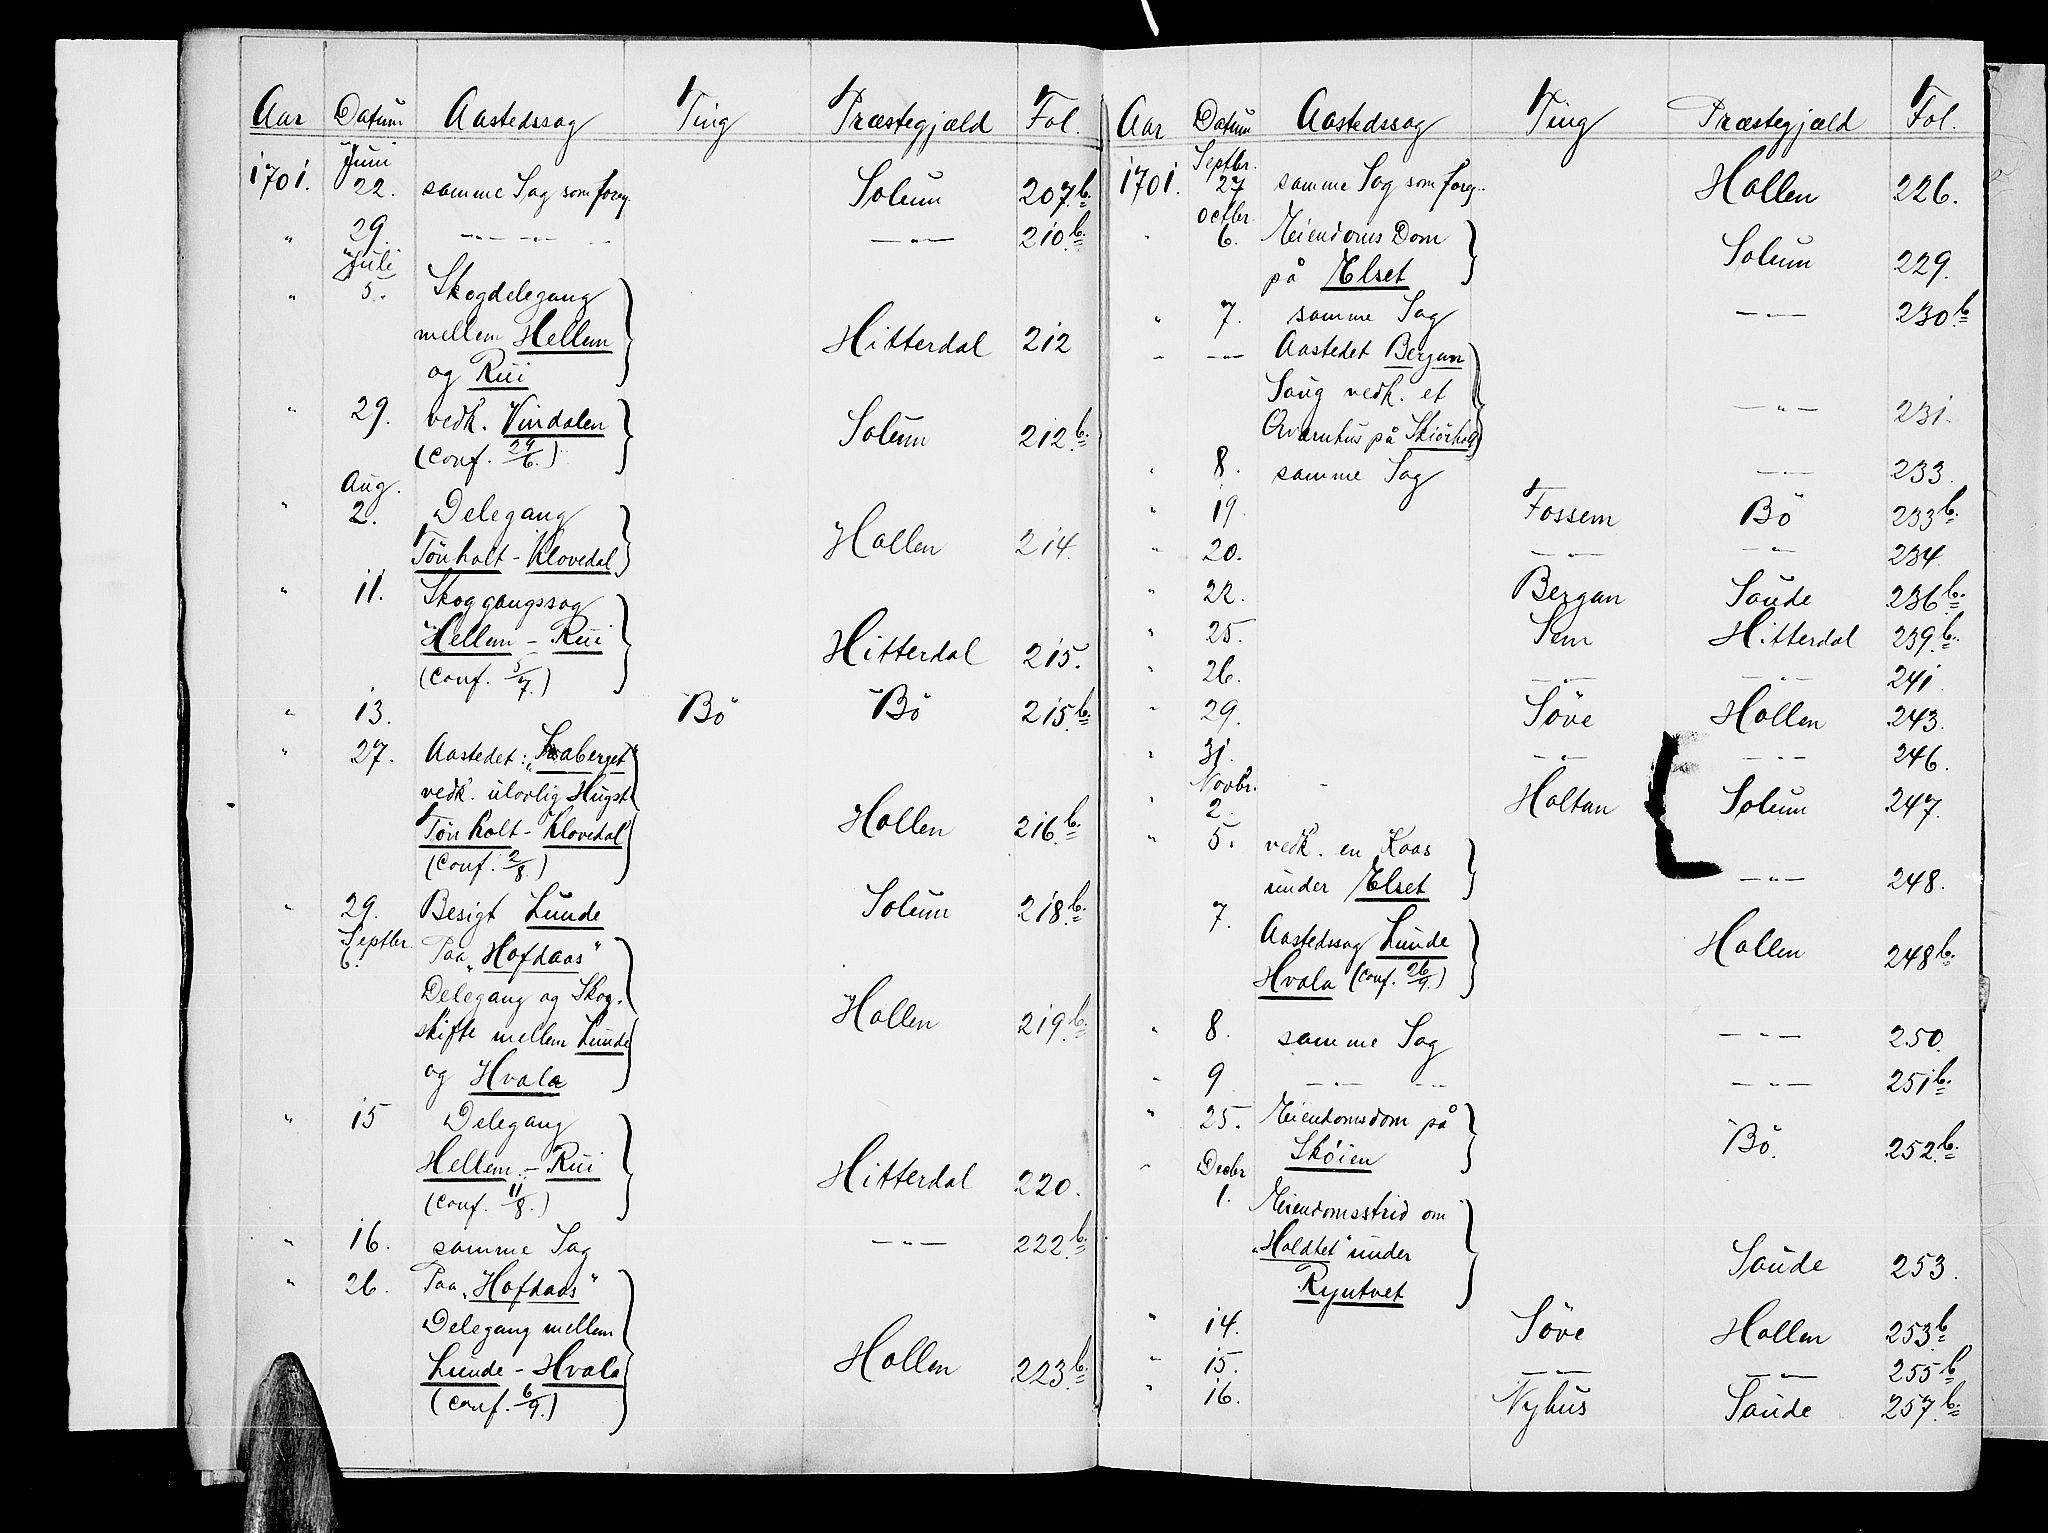 Aar Datum Aastedssag Ting Præstegjæld Fol.
Juni
1701. 22. samme Sag som foreg. Solum 207.b.
" 29. —"— —"— —"— 210.b.
Juli
" 5. Skogdelegang
mellem Hellem Hitterdal 212
og Rui
" 29. vedk. Vindalen Solum 212.b.
(conf. 29/6.)
Aug.
" 2. Delegang Hollen 214.
Tönholt - Klovedal
" 11. Skoggangssag
Hellem - Rui Hitterdal 215.
(conf. 5/7.)
" 13. Bö Bö 215.b.
" 27. Aastedet: „
vedk. ulovlig Hugst
Tönholt - Klovedal Hollen 216.b.
(conf. 2/8.)
" 29. Besigt Lunde Solum 218.b.
Septbr.
6. Paa „Hofdaas"
Delegang og Skog-
skifte mellem Lunde Hollen 219.b.
og Hvala
" 15 Delegang
Hellem - Rui Hitterdal 220.
(conf. 11/8.)
" 16. samme Sag —"— 222.b.
" 26. Paa „Hofdaas"
Delegang mellem
Lunde - Hvala Hollen 223.b.
(conf. 6/9.)
Aar Datum Aastedssag Ting Præstegjæld Fol.
Septbr.
1701. 27 samme Sag som foreg. Hollen 226.
Octbr
" 6. Meiendoms Dom
på Elset Solum 229.
" 7. samme Sag —"— 230.b.
" —"— Aastedet Bergan
Saug vedk. et —"— 231.
Qvarnhus på
" 8. samme Sag —"— 233.
" 19. Fossem Bö 233.b.
" 20. —"— —"— 234.
" 22. Bergan Saude 236.b.
" 25. Sem Hitterdal 239.b.
" 26. —"— —"— 241.
" 29. Söve Hollen 243.
" 31. —"— —"— 246.
Novbr.
" 2. Holtan Solum 247.
" 5. vedk. en Kaas
under Elset —"— 248.
7. Aastedssag Lunde
Hvala (conf. 26/9.) Hollen 248.b.
" 8. samme Sag —"— 250.
" 9 —"— —"— —"— 251.b.
" 25. Meiendomsdom på
Sköien Bö. 252.b.
" Decbr
1. Meiendomsstrid om
„Holdtet" under Saude 253.
Ryntvet
" 14. Söve Hollen 253.b.
" 15. —"— —"— 255.b.
" 16. Nyhus Saude 257.b.